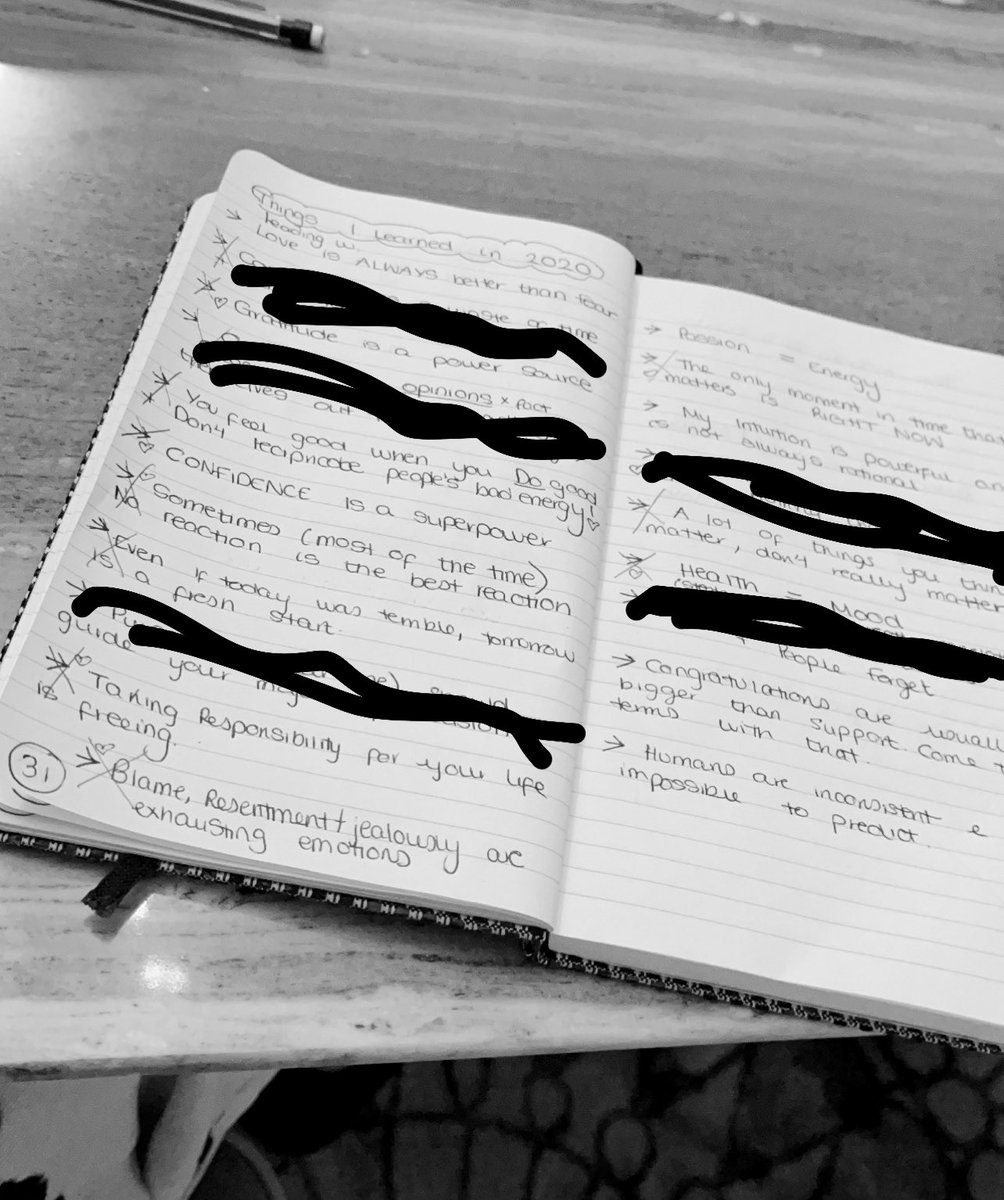 Things I learned in 2020
→ leading w.
Love is ALWAYS better than fear
waste of time
→ ♡ Gratitude is a power source
opinions × fact
out
→ You feel good when you Do good
Don't reciprocate people's bad energy ♡
→ ♡ CONFIDENCE is a superpower
→ ♡ Sometimes (most of the time)
No reaction is the best reaction
→ Even if today was terrible, tomorrow
is a fresh start.
guide your
→ ♡ Taking Responsibility for your life
is freeing.
31
→ ♡ Blame, Resentment + jealously are
exhausting emotions
→ Passion = Energy
→ The only moment in time that
matters is RIGHT NOW
→ My Intuition is powerful an
is not always rational
→ A lot of things you thin
matter, don't really matter
→ Health = Mood
People forget
→ Congratulations are usuall
bigger than support. Come t
terms with that.
→ Humans are inconsistent e
impossible to predict.